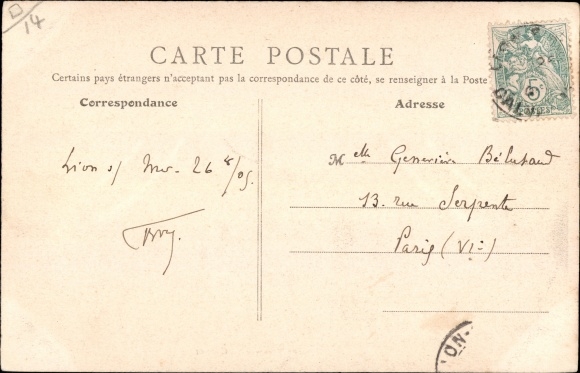 14
CARTE POSTALE
Certains pays étrangers n'acceptant pas la correspondance de ce côté, se renseigner à la Poste
Correspondance
Adresse
Lion s/ Mer. 26 8/05.
Melle Geneviève
13. rue Serpente
Paris (VIe)